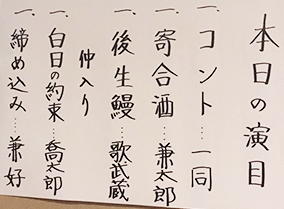 本日の演目
一、コント…一同
一、寄合酒…兼太郎
一、後生鰻…歌武蔵
仲入り
一、白日の約束…喬太郎
一、締め込み…兼好